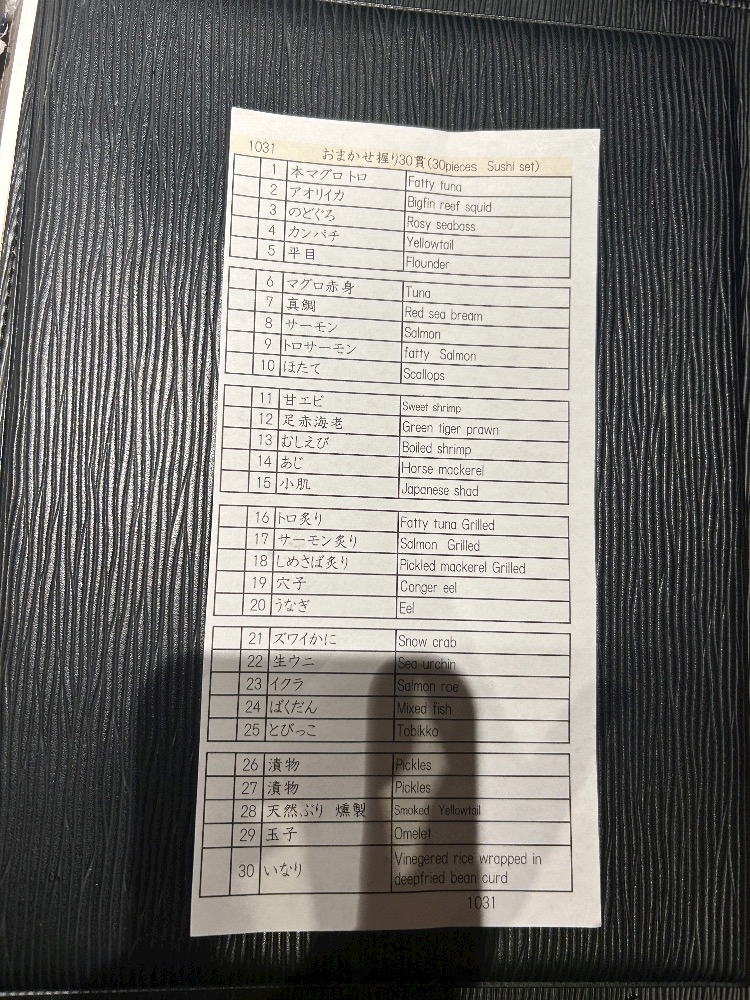 1031 おまかせ握り30貫(30pieces Sushi set)
1 本マグロトロ Fatty tuna
2 アオリイカ Bigfin reef squid
3 のどぐろ Rosy seabass
4 カンパチ Yellowtail
5 平目 Flounder
6 マグロ赤身 Tuna
7 真鯛 Red sea bream
8 サーモン Salmon
9 トロサーモン fatty Salmon
10 ほたて Scallops
11 甘エビ Sweet shrimp
12 足赤海老 Green tiger prawn
13 むしえび Boiled shrimp
14 あじ Horse mackerel
15 小肌 Japanese shad
16 トロ炙り Fatty tuna Grilled
17 サーモン炙り Salmon Grilled
18 しめさば炙り Pickled mackerel Grilled
19 穴子 Conger eel
20 うなぎ Eel
21 ズワイかに Snow crab
22 生ウニ Sea urchin
23 イクラ Salmon roe
24 ばくだん Mixed fish
25 とびっこ Tobikko
26 漬物 Pickles
27 漬物 Pickles
28 天然ぶり 燻製 Smoked Yellowtail
29 玉子 Omelet
30 いなり Vinegered rice wrapped in
deepfried bean curd
1031